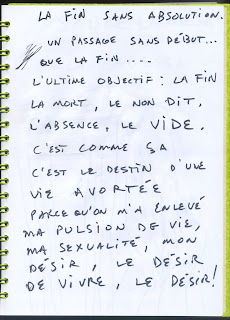 LA FIN SANS ABSOLUTION.
UN PASSAGE SANS DÉBUT...
QUE LA FIN....
L'ULTIME OBJECTIF : LA FIN
LA MORT, LE NON DIT,
L'ABSENCE, LE VIDE,
C'EST COMME ÇA
C'EST LE DESTIN D'UNE
VIE AVORTÉE
PARCE QU'ON M'A ENLEVÉ
MA PULSION DE VIE,
MA SEXUALITÉ, MON
DÉSIR, LE DÉSIR
DE VIVRE, LE DÉSIR!